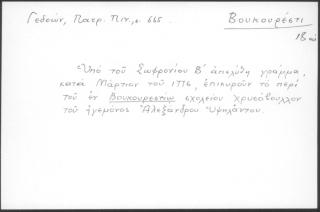 Γεδεών, Πατρ. Πιν., σ. 665. Βουκουρέστι
18 αι.
"Υπό τοῦ Σωφρονίου Β' ἀπελύθη γράμμα,
κατά Μάρτιον τοῦ 1776, ἐπικυροῦν τό περί
τοῦ ἐν Βουκουρεστίῳ σχολείου χρυσόβουλλον
τοῦ ἡγεμόνος Ἀλεξάνδρου Ὑψηλάντου.